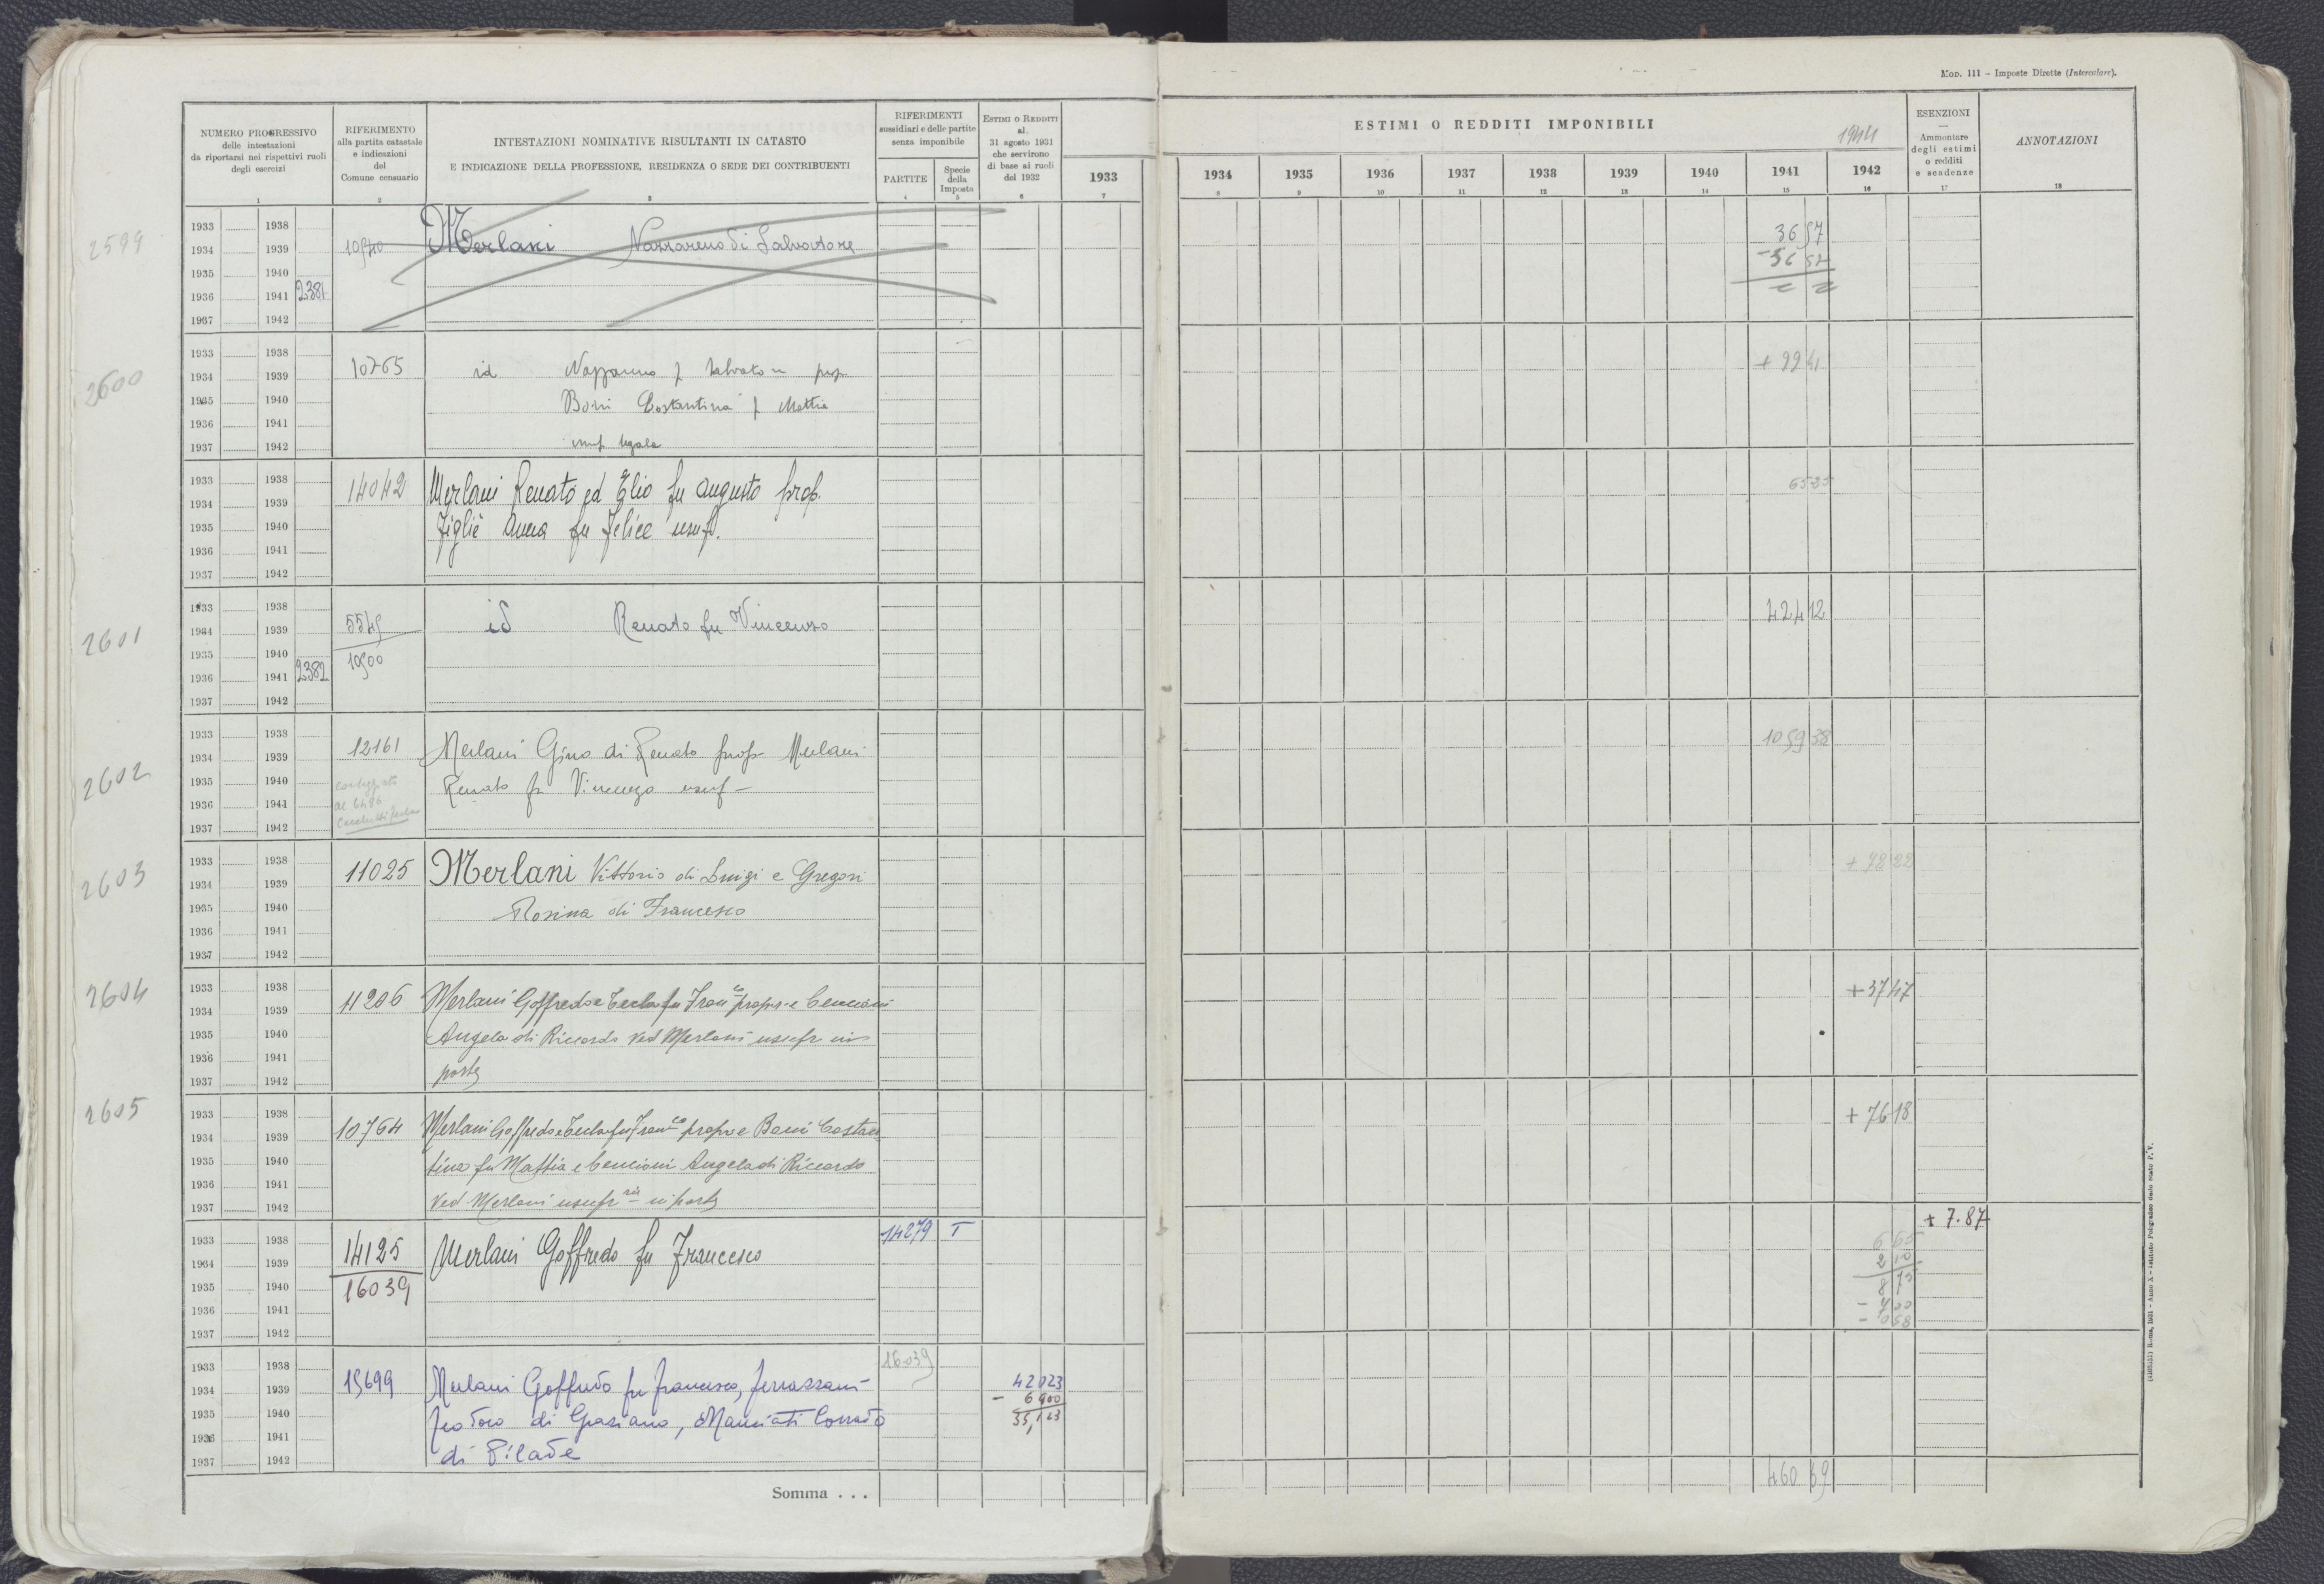 MOD. 111 - Imposte Dirette (Intercalare).
NUMERO PROGRESSIVO
delle intestazioni
da riportarsi nei rispettivi ruoli
degli esercizi
1
RIFERIMENTO
alla partita catastale
e indicazioni
del
Comune censuario
2
INTESTAZIONI NOMINATIVE RISULTANTI IN CATASTO
E INDICAZIONE DELLA PROFESSIONE, RESIDENZA O SEDE DEI CONTRIBUENTI
3
RIFERIMENTI
sussidiari e delle partite
senza imponibile
PARTITE
4
Specie
della
Imposta
5
ESTIMI O REDDITI
al
31 agosto 1931
che servirono
di base ai ruoli
del 1932
6
ESTIMI O REDDITI IMPONIBILI
1944
1933 1934 1935 1936 1937 1938 1939 1940 1941 1942
7 8 9 10 11 12 13 14 15 16
ESENZIONI
Ammontare
degli estimi
o redditi
e scadenze
17
ANNOTAZIONI
18
2599
1933 1938
1934 1939 Merlani Nazzareno di Salvatore 36 57
1935 1940
1936 1941 2381
1937 1942
2600
1933 1938
1934 1939 10765 id + 22 41
1935 1940 Costantina f Mattia
1936 1941
1937 1942 usuf legale
1933 1938
1934 1939 14042 Merlani Renato ed Elio fu Augusto prop. 65 25
1935 1940 Anna fu Felice usuf.
1936 1941
1937 1942
2601
1933 1938
1934 1939 id Renato fu Vincenzo 424 12
1935 1940
1936 1941 2382
1937 1942
2602
1933 1938
1934 1939 12161 Merlani Gino di Renato prop Merlani
1935 1940 Renato fu Vincenzo usuf -
1936 1941 al 6486
1937 1942
2603
1933 1938
1934 1939 11025 Merlani Vittorio di Luigi e Gregori + 72 22
1935 1940 Rosina di Francesco
1936 1941
1937 1942
2604
1933 1938
1934 1939 11206 Merlani Goffredo e Tecla fu Fran co propr e Cencioni +37 47
1935 1940 Angela di Riccardo ved Merlani usufr in
1936 1941
1937 1942 parte
2605
1933 1938
1934 1939 10764 Merlani Goffredo e Tecla fu Fran co propr e Boni Costan + 76 18
1935 1940 tina fu Mattia e Cencioni Angela di Riccardo
1936 1941
1937 1942 Ved. Merlani usufr rie in parte
14279 T + 7.87
1933 1938
1934 1939 14125 Merlani Goffredo fu Francesco 6 65
1935 1940 16039 2 10
1936 1941 8 75
1937 1942
16039
1933 1938
1934 1939 15699 Merlani Goffredo fu Francesco, 42023
1935 1940 di Graziano, Corrado - 6900
1936 1941 35,123
1937 1942 di Pilade
Somma . . . 460 69